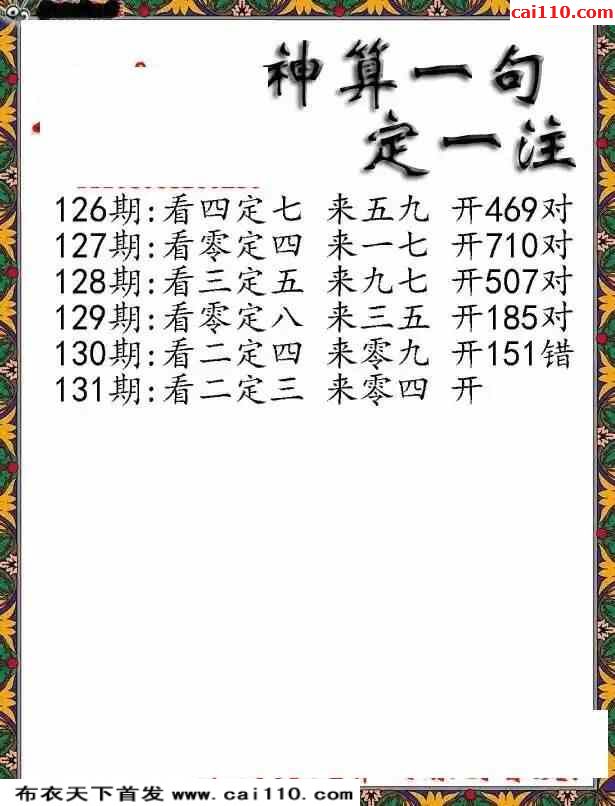 cai110.com
神算一句
定一注
126期:看四定七 来五九 开469对
127期:看零定四 来一七 开710对
128期:看三定五 来九七 开507对
129期:看零定八 来三五 开185对
130期:看二定四 来零九 开151错
131期:看二定三 来零四 开
布衣天下首发 www.cai110.com